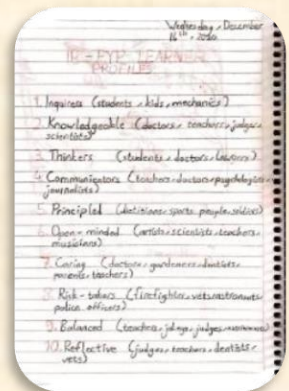 Wednesday, December
16th, 2020
IB-PYP LEARNER
PROFILES
1. Inquirers (students, kids, mechanics)
2. Knowledgeable (doctors, teachers, judges,
scientists)
3. Thinkers (students, doctors, lawyers)
4. Communicators (teachers, doctors, psychologists,
journalists)
5. Principled (dietitians, sports people, soldiers)
6. Open-minded (artists, scientists, teachers,
musicians)
7. Caring (doctors, gardeners, dentists,
parents, teachers)
8. Risk-takers (firefighter, vets, astronauts,
police officers)
9. Balanced (teachers, judges,
10. Reflective (judges, teachers, dentists,
vets)